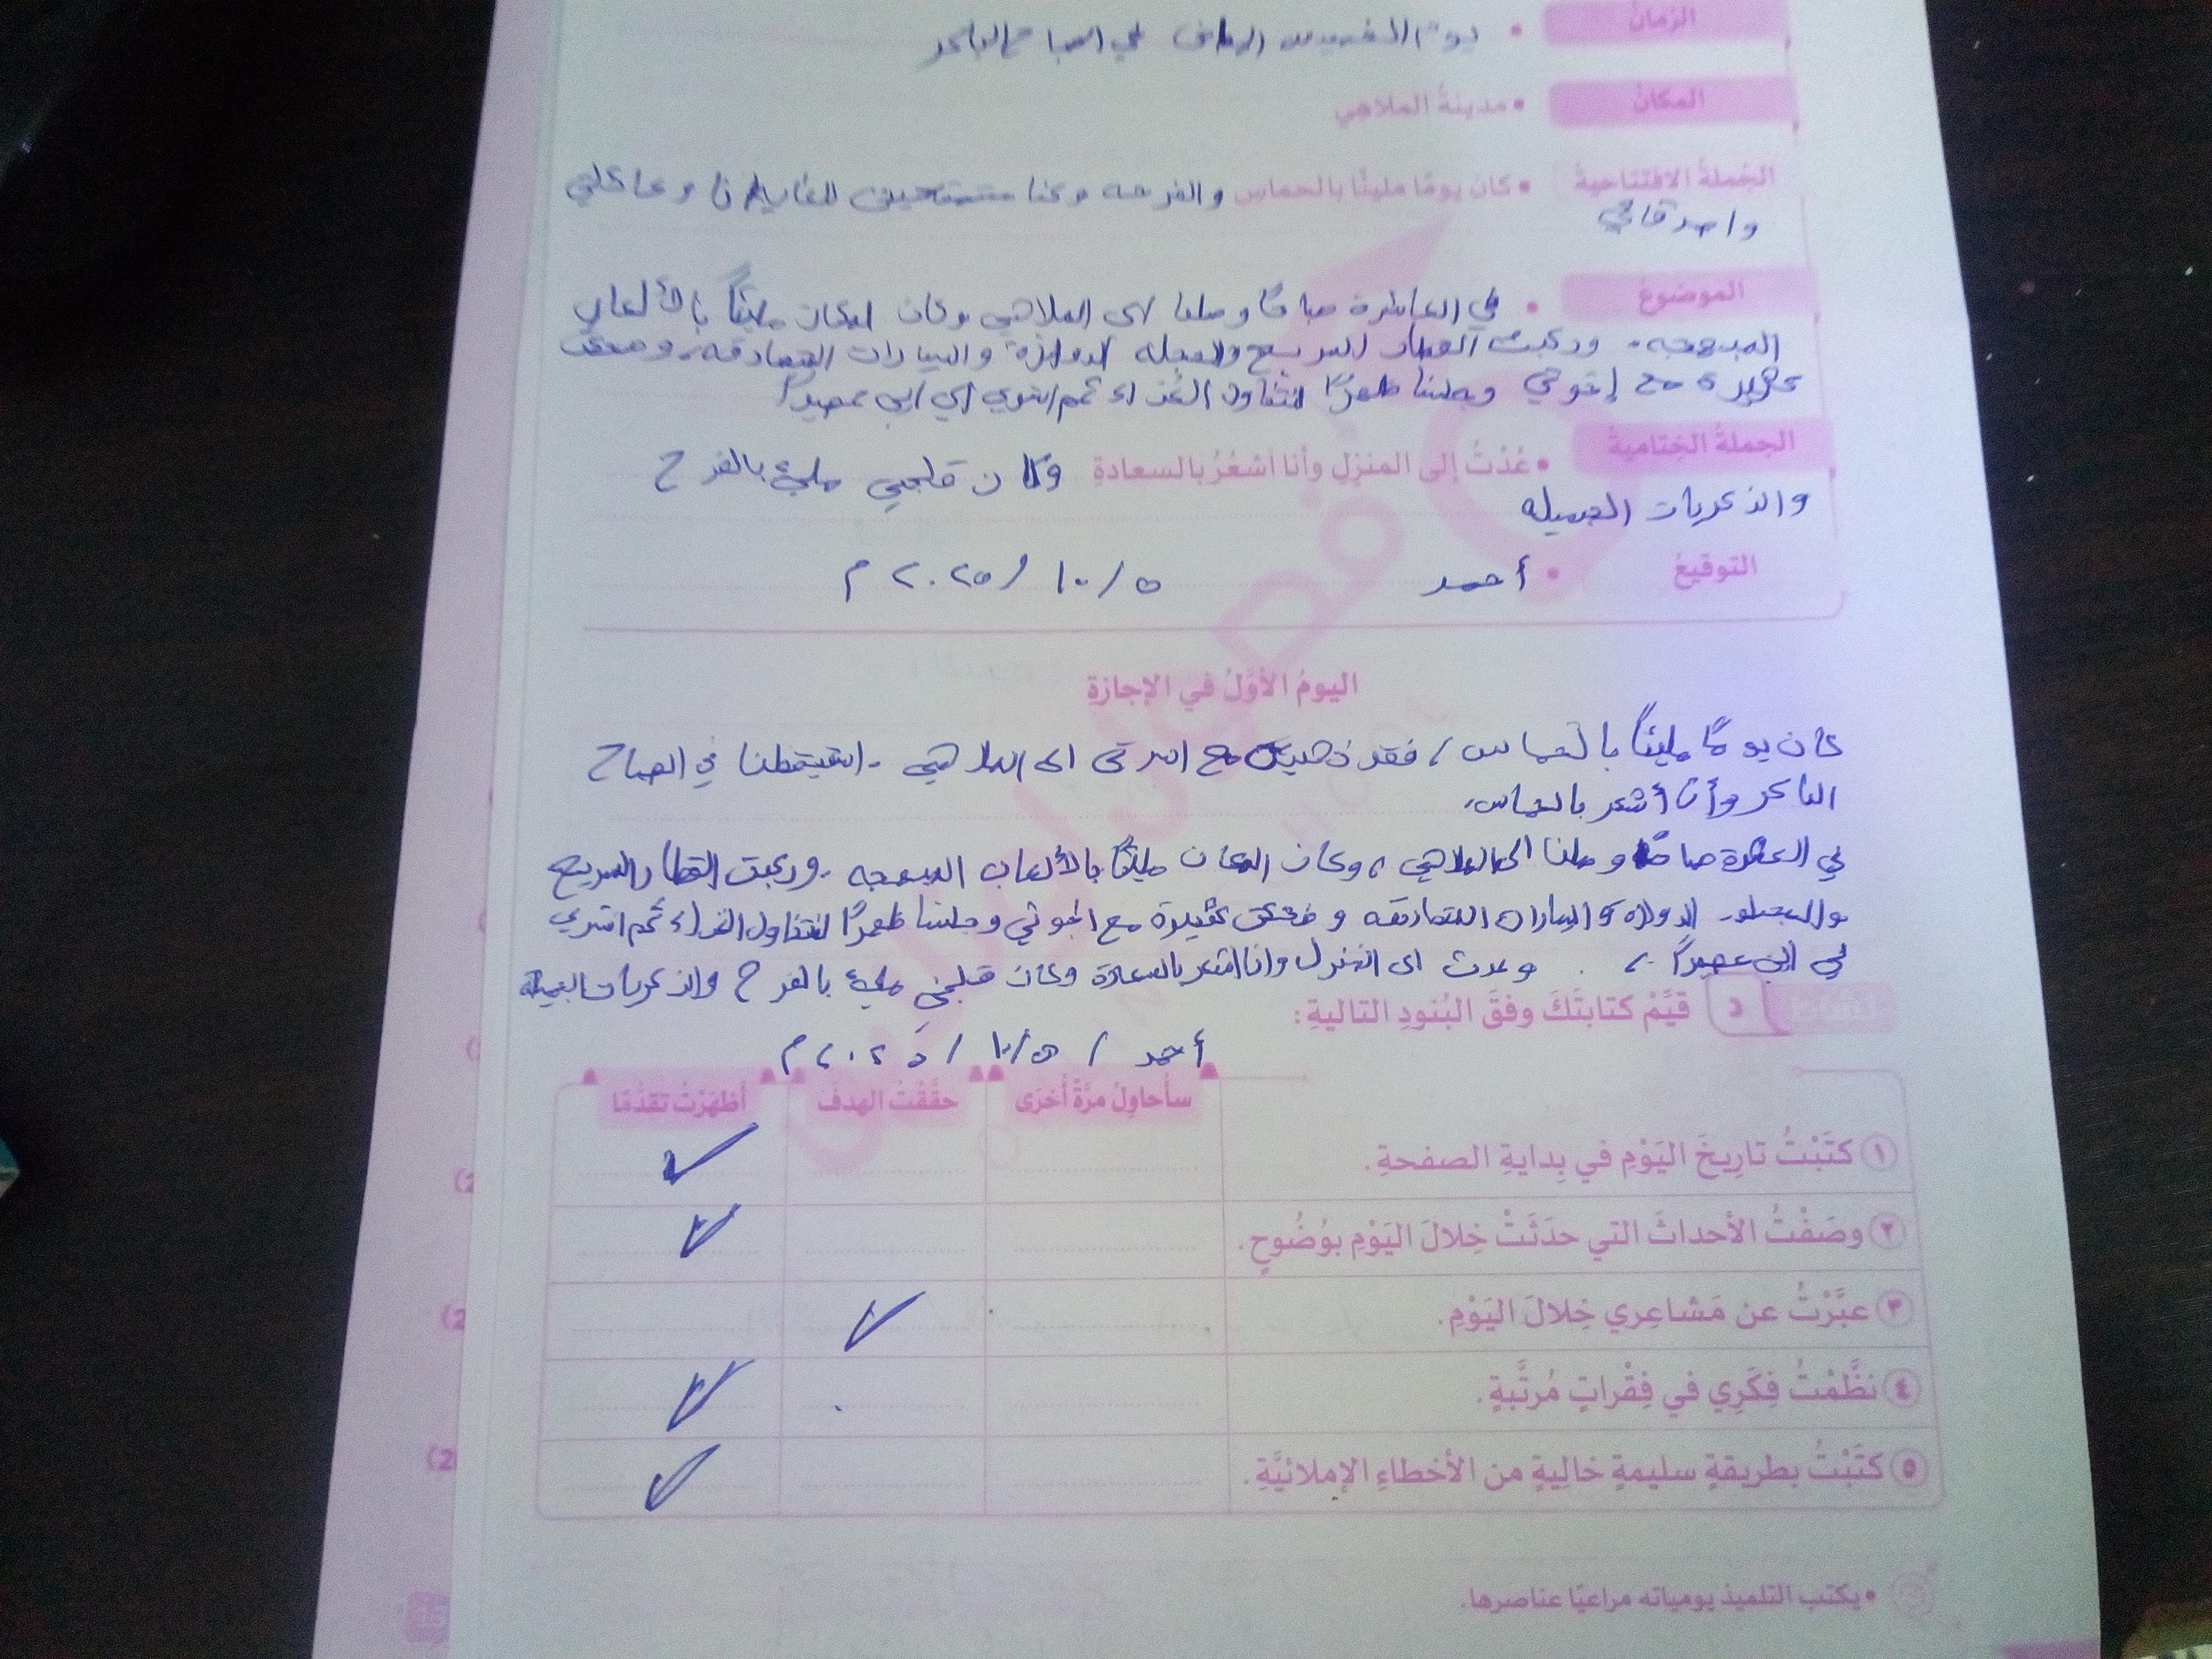 الزمان • يوم الخميس الماضي في الصباح الباكر
المكان • مدينة الملاهي
الجُملة الافتتاحية • كان يومًا مليئًا بالحماسِ والفرحه وكنا متحمسين وعائلتي
واصدقائي
الموضوع • في العاشرة صباحًا وصلنا الى الملاهي وكان المكان مليئًا بالألعاب
المبهجه. وركبت القطار السريع والعجله الدوارة والسيارات المتصادقه، وضحكت
كثيرة مع إخوتي وجلسنا ظهرًا لتناول الغداء ثم اشتري لي ابي عصيرًا
الجملة الختامية • عُدْتُ إلى المنزِلِ وأنا أشعُرُ بالسعادةِ وكان قلبي مليئ بالفرح
والذكريات الجميله
التوقيعُ • أحمد ٥/١٠/٢٠٢٥م
اليومُ الأوّلُ في الإجازةِ
كان يومًا مليئًا بالحماس، فقد ذهبت مع اسرتى الى الملاهي. استيقظنا في الصباح
الباكر وأنا أشعر بالحماس.
في العشرة صباحًا وصلنا الى الملاهي، وكان المكان مليئًا بالألعاب المبهجه. وركبت القطار السريع
والعجله الدواره والسيارات المتصادقه وضحكت كثيرة مع اخوتي وجلسنا ظهرًا لتناول الغداء ثم اشتري
لي أبي عصيرًا. وعدت الى المنزل وانا اشعر بالسعادة وكان قلبي مليئ بالفرح والذكريات الجميله
أحمد / ٥/١٠/٢٠٢٥م
د قيِّمْ كتابتَكَ وفقَ البُنودِ التاليةِ:
سأحاوِلُ مرَّةً أُخرَى حقَّقْتُ الهدفَ أظهَرْتُ تقدُّمًا
١ كتَبْتُ تارِيخَ اليَوْمِ في بِدايةِ الصفحةِ. ✓
٢ وصَفْتُ الأحداثَ التي حدَثَتْ خِلالَ اليَوْمِ بوُضُوحٍ. ✓
٣ عبَّرْتُ عن مَشاعِري خِلالَ اليَوْمِ. ✓
٤ نظَّمْتُ فِكَرِي في فِقْراتٍ مُرتَّبةٍ. ✓
٥ كتَبْتُ بطريقةٍ سليمةٍ خالِيةٍ من الأخطاءِ الإملائيَّةِ. ✓
• يكتب التلميذ يومياته مراعيًا عناصرها.